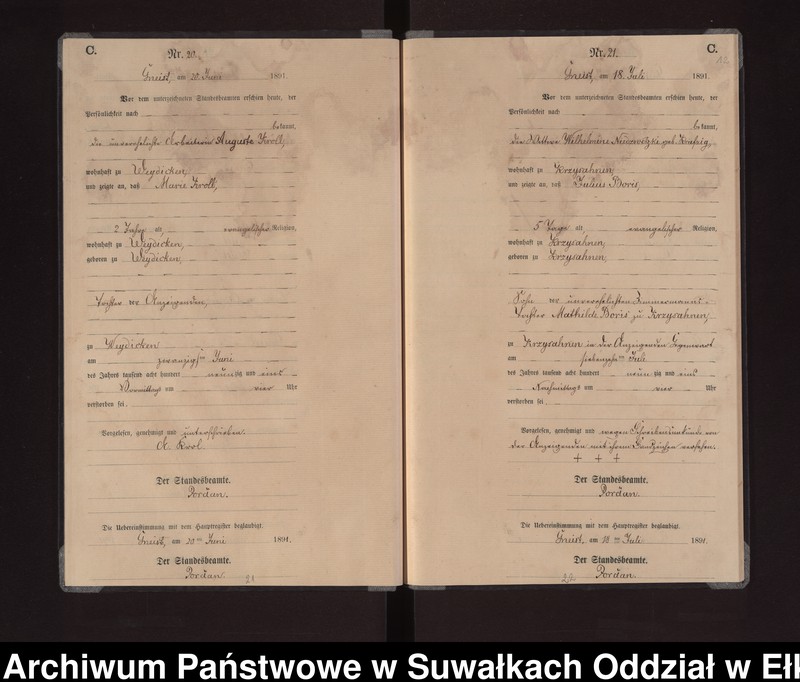 C.
Nr. 20.
Gneist, am 20. Juni 1891.
Vor dem unterzeichneten Standesbeamten erschien heute, der
Persönlichkeit nach
bekannt,
die unverehelichte Arbeiterin Auguste Kroll,
wohnhaft zu Weydicken,
und zeigte an, daß Marie Kroll,
2 Jahre alt, evangelischer Religion,
wohnhaft zu Weydicken,
geboren zu Weydicken,
Tochter der Anzeigenden,
zu Weydicken
am zwanzigsten Juni
des Jahres tausend acht hundert neunzig und eins
Vormittags um vier Uhr
verstorben sei.
Vorgelesen, genehmigt und unterschrieben.
A. Krol.
Der Standesbeamte.
Pordan.
Die Uebereinstimmung mit dem Hauptregister beglaubigt.
Gneist, am 20ten Juni 1891.
Der Standesbeamte.
Pordan.
21
C.
Nr. 21.
Gneist, am 18. Juli 1891.
Vor dem unterzeichneten Standesbeamten erschien heute, der
Persönlichkeit nach
bekannt,
die Wilhelmine geb.
wohnhaft zu Krzysahnen,
und zeigte an, daß Julius Boris,
5 Tage alt evangelischer Religion,
wohnhaft zu Krzysahnen,
geboren zu Krzysahnen,
Sohn der unverehelichten Zimmermanns-
tochter Mathilde Boris zu Krzysahnen,
zu Krzysahnen in der Anzeigenden Gegenwart
am siebenzehnten Juli
des Jahres tausend acht hundert neunzig und eins
Nachmittags um vier Uhr
verstorben sei.
Vorgelesen, genehmigt und wegen Schreibensunkunde von
der Anzeigenden mit ihrem Handzeichen versehen.
+ + +
Der Standesbeamte.
Pordan.
Die Uebereinstimmung mit dem Hauptregister beglaubigt.
Gneist, am 18ten Juli 1891.
Der Standesbeamte.
22 Pordan.
Archiwum Państwowe w Suwałkach Oddział w Ełk